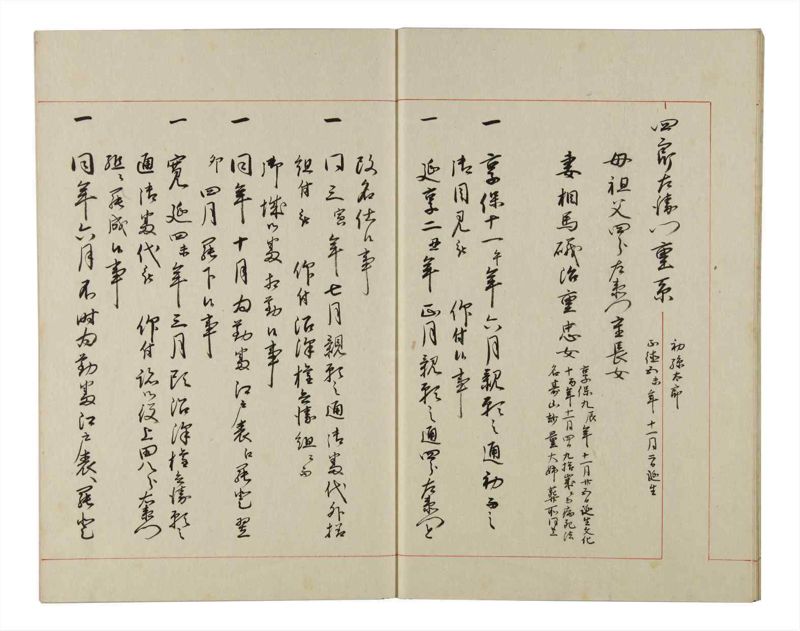 四郎左衛門重系
初孫太郎
正徳五未年十一月二日誕生
母祖父四郎左衛門重長女
妻相馬礒治重忠女
享保九辰年十一月廿五日誕生文化
十酉年十一月四日九拾歳ニ而病死法
名寿山妙量大姉葬所同上
一 享保十一午年六月親願之通初而之
御目見被 仰付候事
一 延享二丑年正月親願之通四郎左衛門と
改名仕候事
一 同三寅年七月親願之通御番代外様
組付被 仰付沼深権兵衛組ニ而
御城御番相勤候事
一 同年十月為勤番江戸表江罷登翌
卯四月罷下候事
一 寛延四未年三月頭沼深権兵衛願之
通御番代被 仰付跡役上田八郎左衛門
組ニ罷成候事
一 同年六月不時為勤番江戸表へ罷登